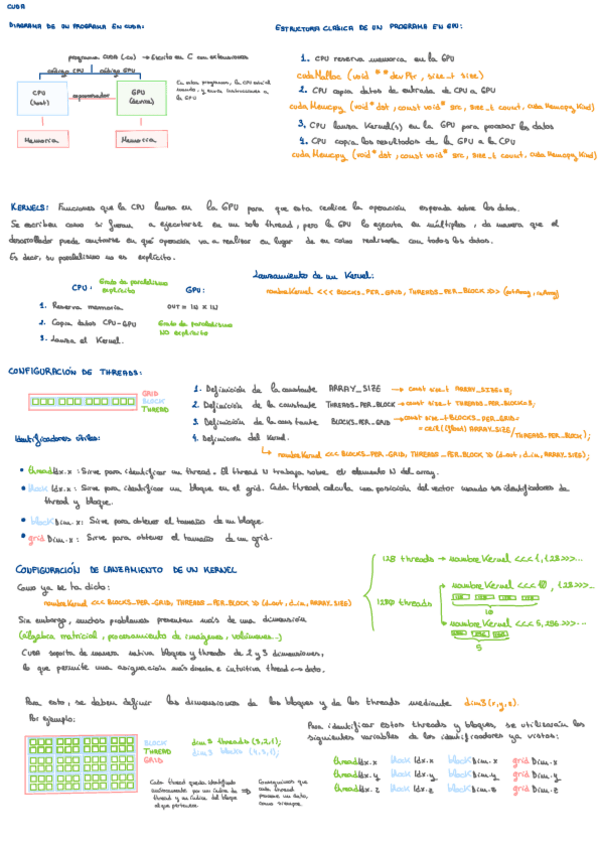 CUDA
DIAGRAMA DE UN PROGRAMA EN CUDA:
programa CUDA (.cu) → Escrito en C con extensiones
código CPU código GPU
CPU
(host)
GPU
(device)
Memoria
Memoria
ESTRUCTURA CLÁSICA DE UN PROGRAMA EN GPU:
1. CPU reserva memoria en la GPU
cudaMalloc (void ** devPtr, size_t size)
2. CPU copia datos de entrada de CPU a GPU
cudaMemcpy (void* dst, const void* src, size_t count, cudaMemcpyKind)
3. CPU lanza Kernel(s) en la GPU para procesar los datos
4. CPU copia los resultados de la GPU a la CPU
cudaMemcpy (void* dst, const void* src, size_t count, cudaMemcpyKind)
KERNELS: Funciones que la CPU lanza en la GPU para que esta realice la operación esperada sobre los datos.
Se escriben como si fueran a ejecutarse en un solo thread, pero la GPU lo ejecuta en múltiples, de manera que el
desarrollador puede centrarse en qué operación va a realizar en lugar de en cómo realizarla con todos los datos.
Es decir, su paralelismo no es explícito.
CPU: Grado de paralelismo explícito
1. Reserva memoria
2. Copia datos CPU-GPU
3. Lanza el Kernel.
GPU:
OUT = IN × IN
Grado de paralelismo
NO explícito
Lanzamiento de un Kernel:
nombreKernel <<< BLOCKS_PER_GRID, THREADS_PER_BLOCK >>> (outArray, inArray)
CONFIGURACIÓN DE THREADS:
GRID
BLOCK
THREAD
1. Definición de la constante ARRAY_SIZE → const size_t ARRAY_SIZE=
2. Definición de la constante THREADS_PER_BLOCK → const size_t THREADS_PER_BLOCK=
3. Definición de la constante BLOCKS_PER_GRID → const size_t BLOCKS_PER_GRID=
= ceil((float) ARRAY_SIZE/THREADS_PER_BLOCK);
4. Definición del Kernel.
↳ nombreKernel <<< BLOCKS_PER_GRID, THREADS_PER_BLOCK >>> (d_out, d_in, ARRAY_SIZE);
Identificadores útiles:
• threadIdx.x: Sirve para identificar un thread. El thread N trabaja sobre el elemento N del array.
• blockIdx.x: Sirve para identificar un bloque en el grid. Cada thread calcula una posición del vector usando su identificadores de
thread y bloque.
• blockDim.x: Sirve para obtener el tamaño de un bloque.
• gridDim.x: Sirve para obtener el tamaño de un grid.
CONFIGURACIÓN DE LANZAMIENTO DE UN KERNEL
Como ya se ha dicho:
nombreKernel <<< BLOCKS_PER_GRID, THREADS_PER_BLOCK >>> (d_out, d_in, ARRAY_SIZE)
Sin embargo, muchos problemas presentan más de una dimensión
(álgebra matricial, procesamiento de imágenes, volúmenes..)
Cuda soporta de manera nativa bloques y threads de 2 y 3 dimensiones,
lo que permite una asignación más directa e intuitiva thread↔dato.
128 threads → nombreKernel <<<1,128>>>...
1280 threads
nombreKernel <<<10, 128>>>...
10
nombreKernel <<<5, 256>>>...
5
Para esto, se deben definir las dimensiones de los bloques y de los threads mediante dim3(x,y,z).
Por ejemplo:
BLOCK
THREAD
GRID
dim3 threads (3,2,1);
dim3 blocks (4,3,1);
Cada thread queda identificado
thread y un índice del bloque
al que pertenece
Conseguimos que
cada thread
procese un dato,
como siempre.
Para identificar estos threads y bloques, se utilizarán las
siguientes variables de los identificadores ya vistos:
threadIdx.x blockIdx.x blockDim.x gridDim.x
threadIdx.y blockIdx.y blockDim.y gridDim.y
threadIdx.z blockIdx.z blockDim.z gridDim.z